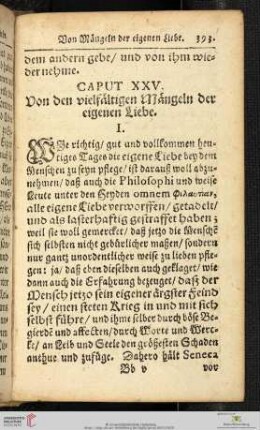 Von Mängeln der eigenen Liebe. 393.
dem andern gebe/ und von ihm wie-
der nehme.
CAPUT XXV.
Von den vielfältigen Mängeln der
eigenen Liebe.
I.
WIe richtig/ gut und vollkommen heu-
tiges Tages die eigene Liebe bey dem
Menschen zu seyn pflege/ ist darauß woll abzu-
nehmen/ daß auch die Philosophi und weise
Leute unter den Heyden omnem Φιλαυτίαν,
alle eigene Liebe verworffen/ getadelt/
und als lasterhafftig gestraffet haben;
weil sie woll gemercket/ daß jetzo die Menschē
sich selbsten nicht gebürlicher maßen/ sondern
nur gantz unordentlicher weise zu lieben pfle-
gen: ja/ daß eben dieselben auch geklaget/ wie
dann auch die Erfahrung bezeuget/ daß der
Mensch jetzo sein eigener ärgster Feind
sey/ einen steten Krieg in und mit sich
selbst führe/ und ihme selber durch böse Be-
gierde und affecten/ durch Worte und Werc-
ke/ an Leib und Seele den größesten Schaden
anthue und zufüge. Dahero hält Seneca
Bb v vor